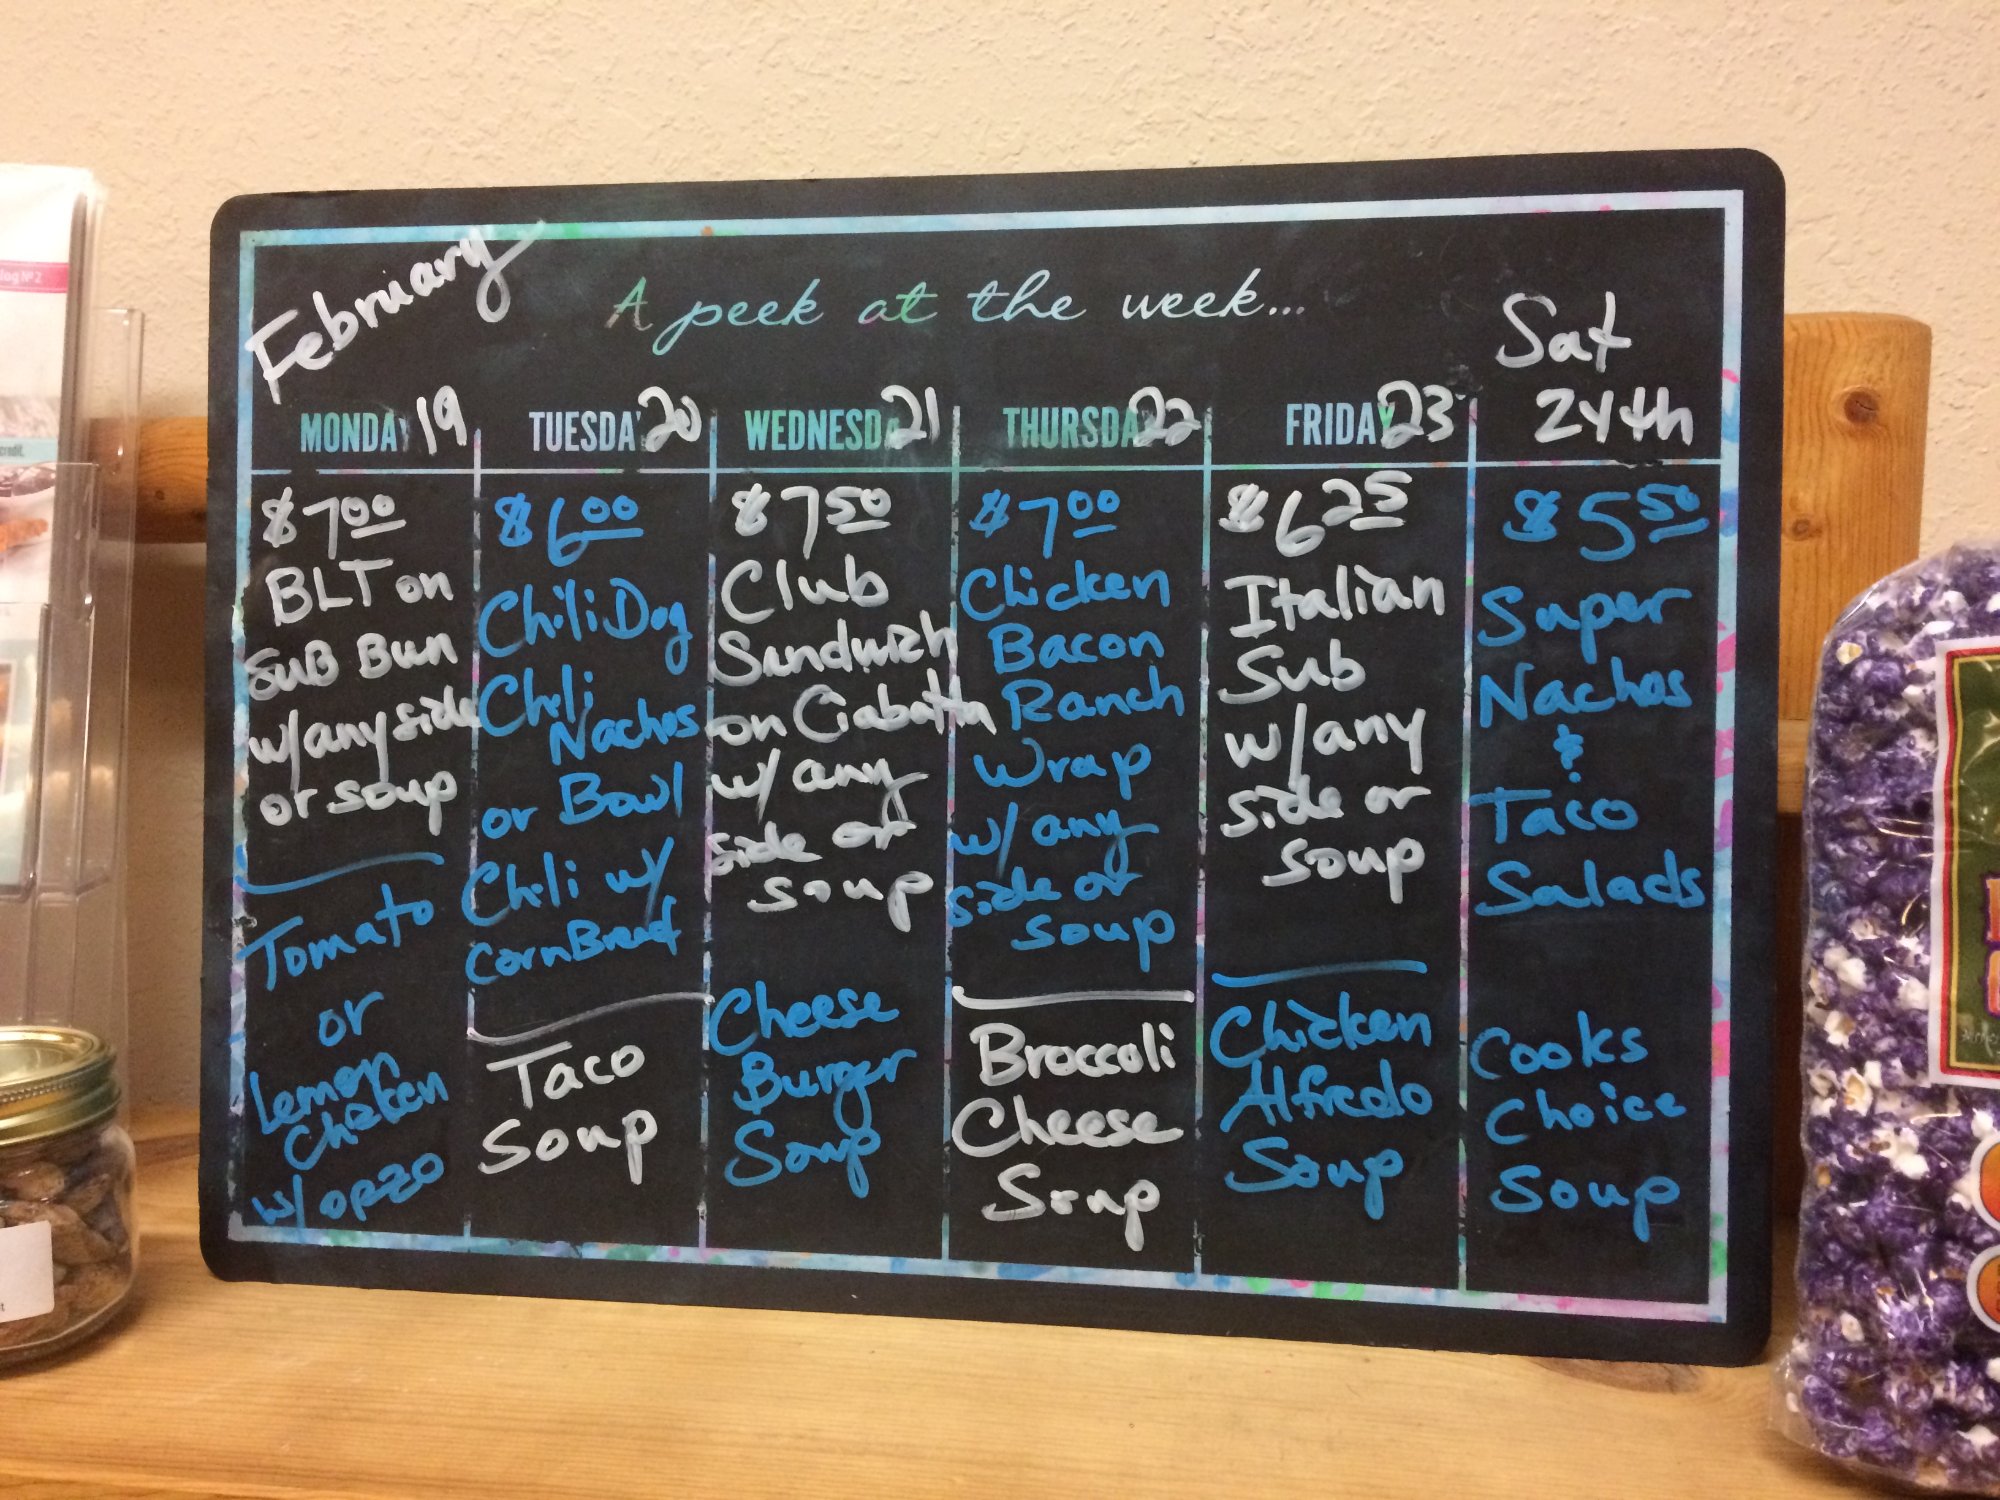 February
A peek at the week...
Sat
24th
MONDAY 19
TUESDAY 20
WEDNESDAY 21
THURSDAY 22
FRIDAY 23
$7.00
BLT on
SUB Bun
w/any side
or soup
Tomato
or
Lemon
Chicken
w/ opzo
$6.00
Chili Dog
Chili
Nachos
or Bowl
Chili w/
CornBread
Taco
Soup
$7.50
Club
Sandwich
on Ciabatta
w/ any
side or
soup
Cheese
Burger
Soup
$7.00
Chicken
Bacon
Ranch
Wrap
w/ any
side or
soup
Broccoli
Cheese
Soup
$6.25
Italian
Sub
w/any
side or
soup
Chicken
Alfredo
Soup
$5.50
Super
Nachos
&
Taco
Salads
Cooks
Choice
Soup
log Nº2
credit.